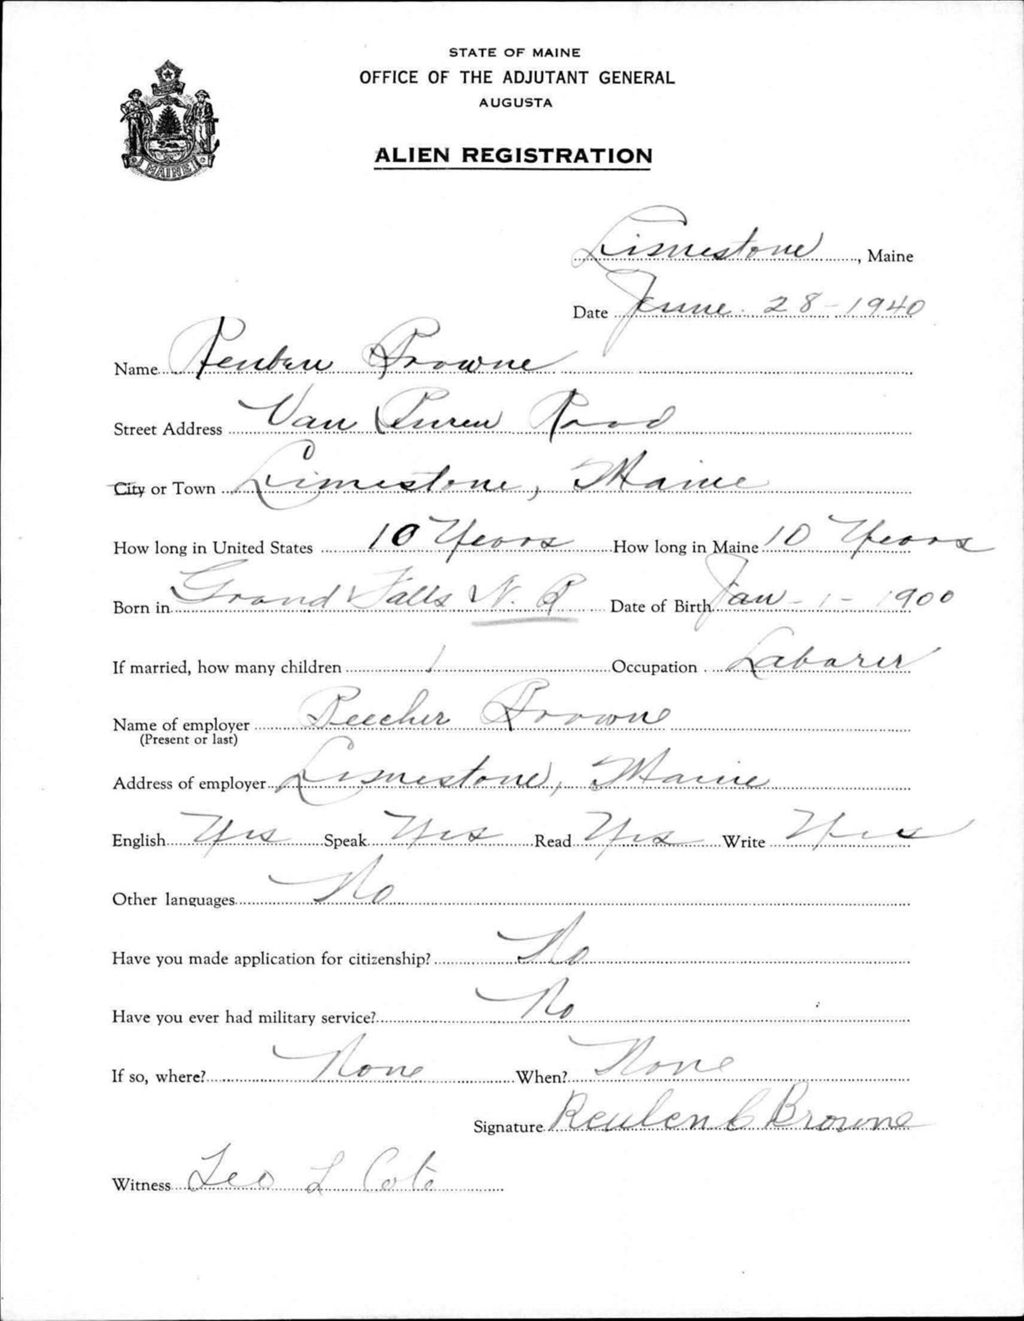 STATE OF MAINE
OFFICE OF THE ADJUTANT GENERAL
AUGUSTA
ALIEN REGISTRATION
MAINE
Limestone, Maine
Date June 28-1940
Name Reuben Browne
Street Address Van Buren Road
City or Town Limestone, Maine
How long in United States 10 Years How long in Maine 10 Years
Born in Grand Falls N. B Date of Birth Jan-1-1900
If married, how many children 1 Occupation Laborer
Name of employer Beecher Browne
(Present or last)
Address of employer Limestone, Maine
English Yes Speak Yes Read Yes Write Yes
Other languages No
Have you made application for citizenship? No
Have you ever had military service? No
If so, where? None When? None
Signature Reuben C Browne
Witness Leo L Cote